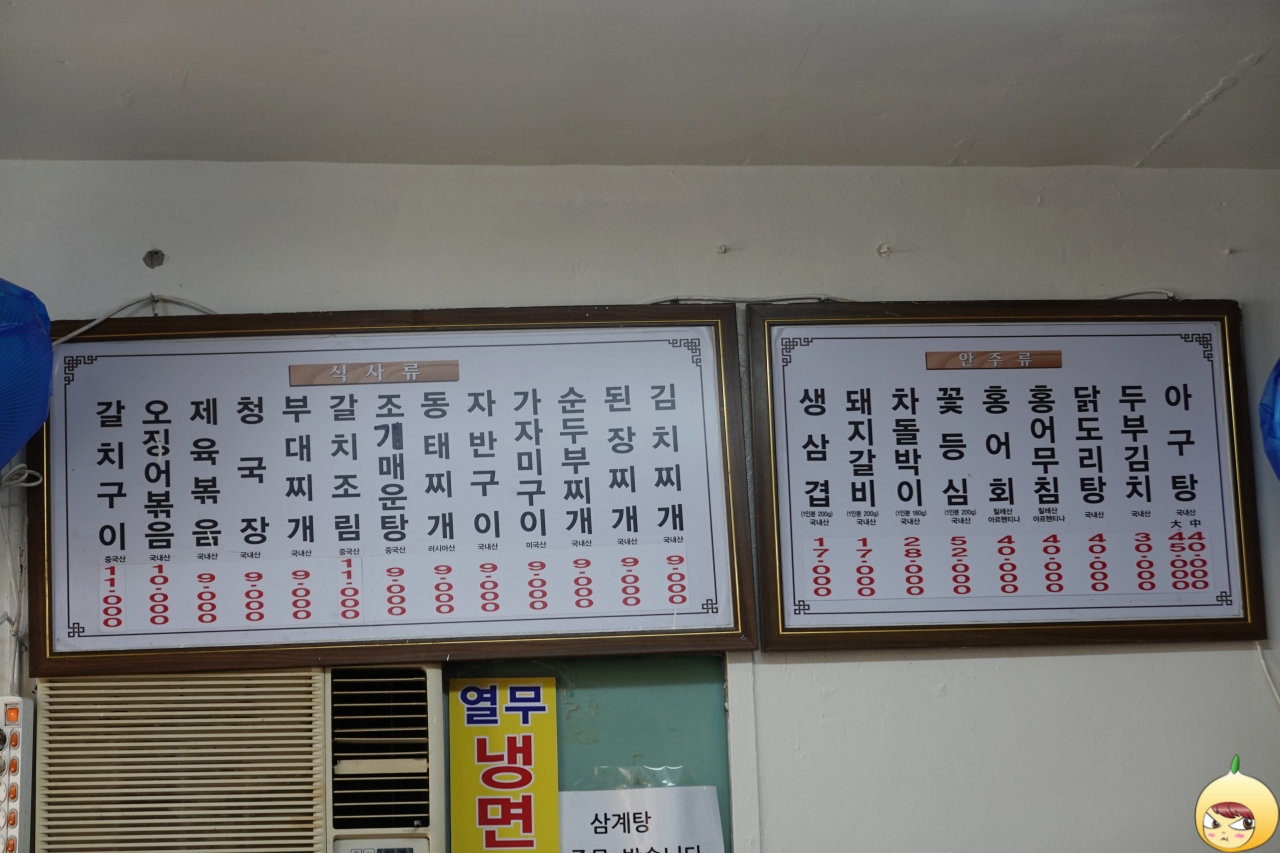 식사류
갈치구이
중국산
11.000
오징어볶음
국내산
10.000
제육볶음
국내산
9.000
청국장
국내산
9.000
부대찌개
국내산
9.000
갈치조림
중국산
11.000
조개매운탕
중국산
9.000
동태찌개
러시아산
9.000
자반구이
국내산
9.000
가자미구이
미국산
9.000
순두부찌개
국내산
9.000
된장찌개
국내산
9.000
김치찌개
국내산
9.000
안주류
생삼겹
(1인분 200g)
국내산
17.000
돼지갈비
(1인분 200g)
국내산
17.000
차돌박이
(1인분 180g)
국내산
28.000
꽃등심
(1인분 200g)
국내산
52.000
홍어회
칠레산
아르헨티나
40.000
홍어무침
칠레산
아르헨티나
40.000
닭도리탕
국내산
40.000
두부김치
국내산
30.000
아구탕
국내산
大 45.000
中 40.000
열무
냉면
삼계탕